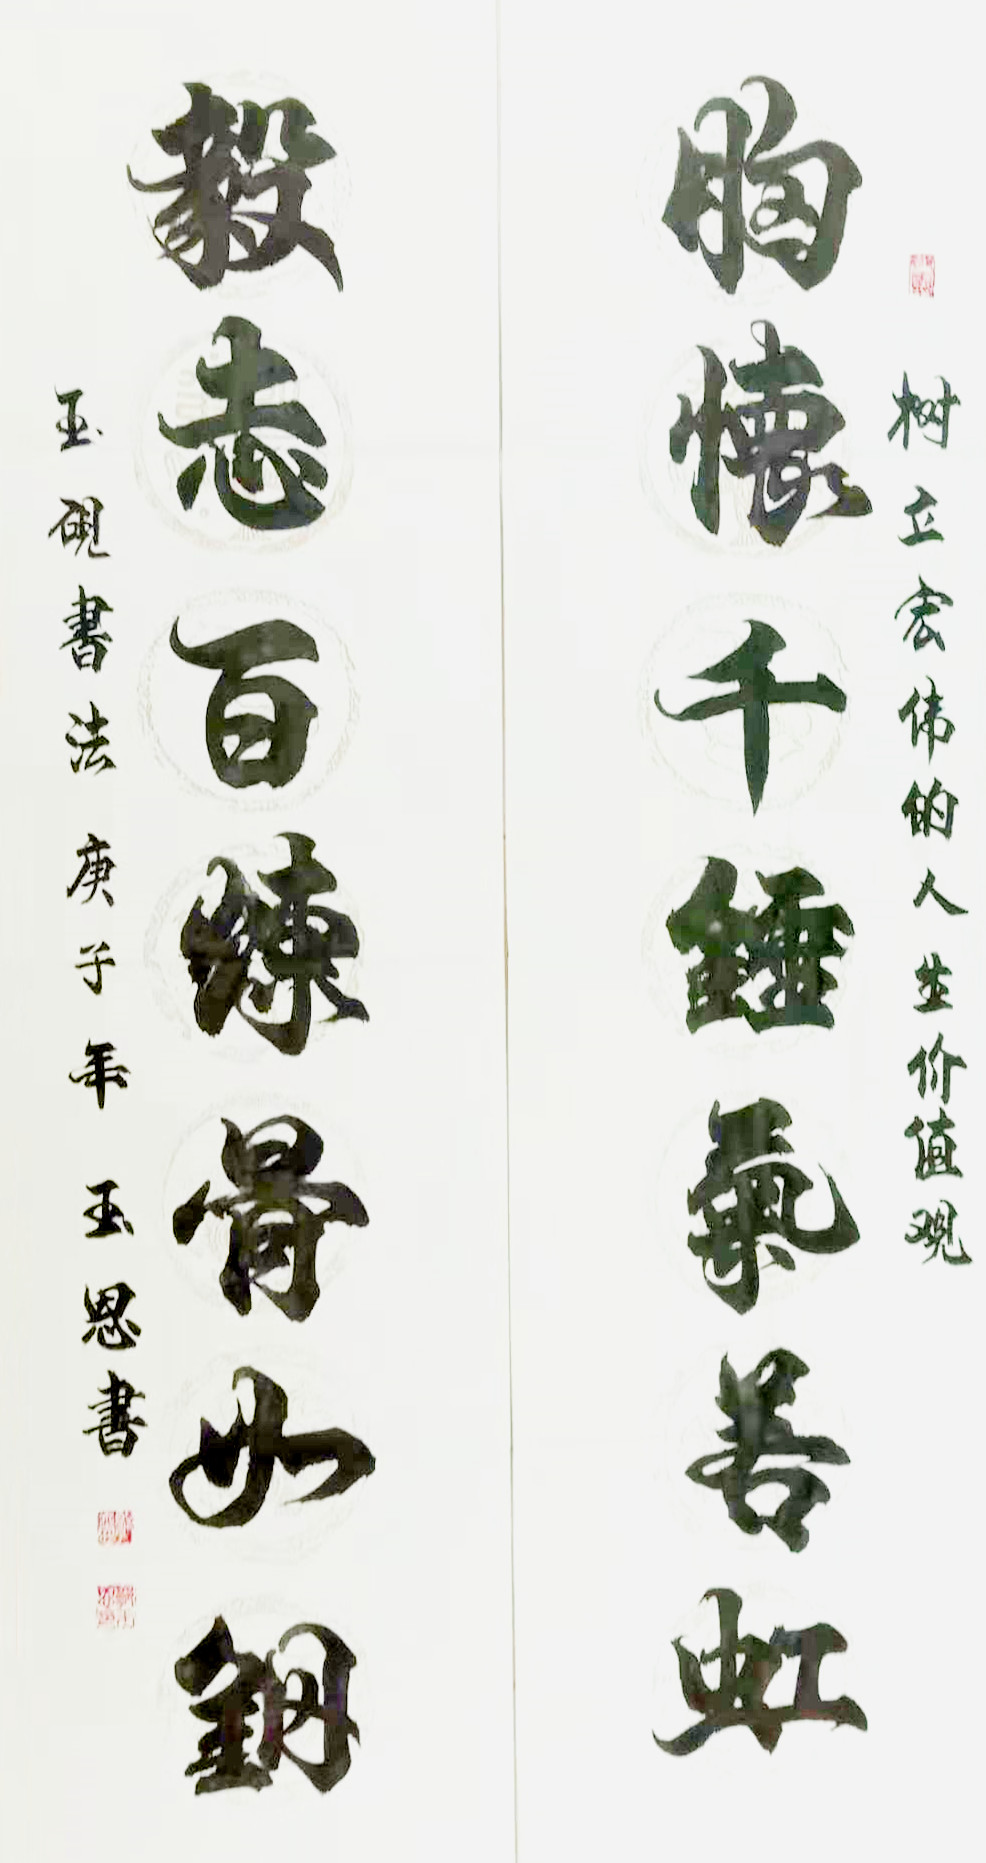 树立宏伟的人生价值观
胸懷千錘氣若虹
毅志百煉骨如鋼
玉砚書法 庚子年 玉恩書